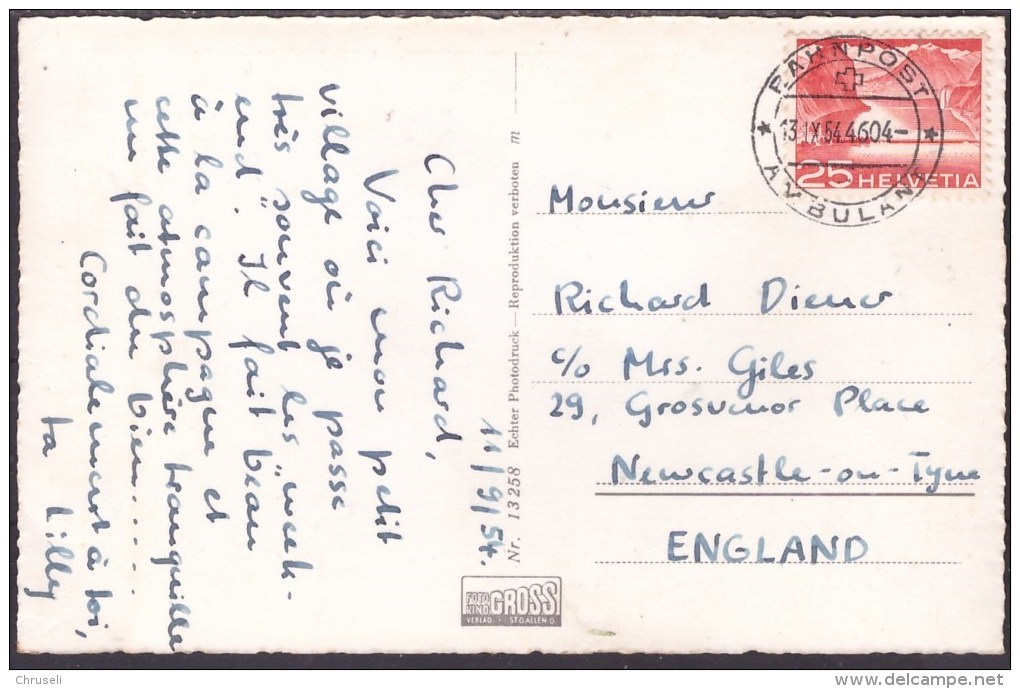 11/9/54.
Cher Richard,
Voici mon petit
village où je passe
très souvent les "week-
end". Il fait beau
à la campagne et
cette atmosphère tranquille
me fait du bien......
Cordialement à toi,
ta Lilly
Nr. 13258 Echter Photodruck — Reproduktion verboten m
FOTO
KINO
GROSS
VERLAG · ST.GALLEN O
BAHNPOST
13.IX.54.4604-
AMBULANT
25 HELVETIA
Monsieur
Richard Diener
c/o Mrs. Giles
29, Grosvenor Place
Newcastle-on-Tyne
ENGLAND
Chruseli
www.delcampe.net